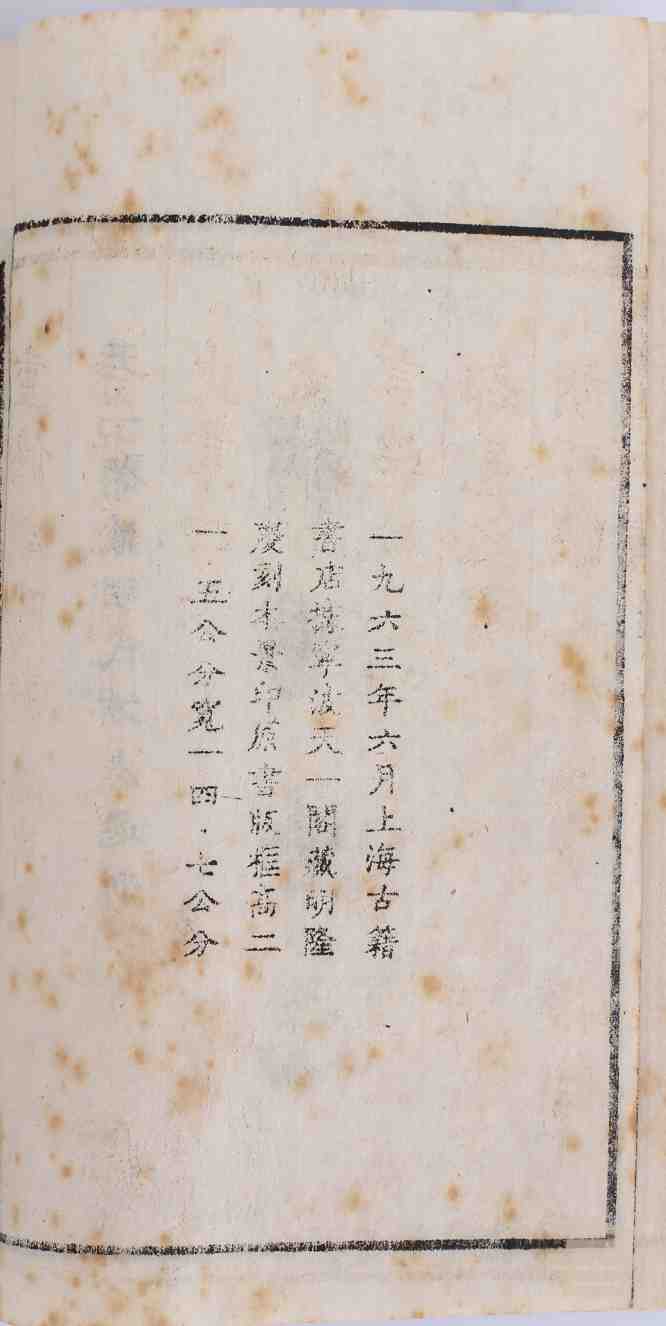 一九六三年六月上海古籍
書店據寧波天一閣藏明隆
慶刻本景印原書版框高二
一·五公分寬一四·七公分